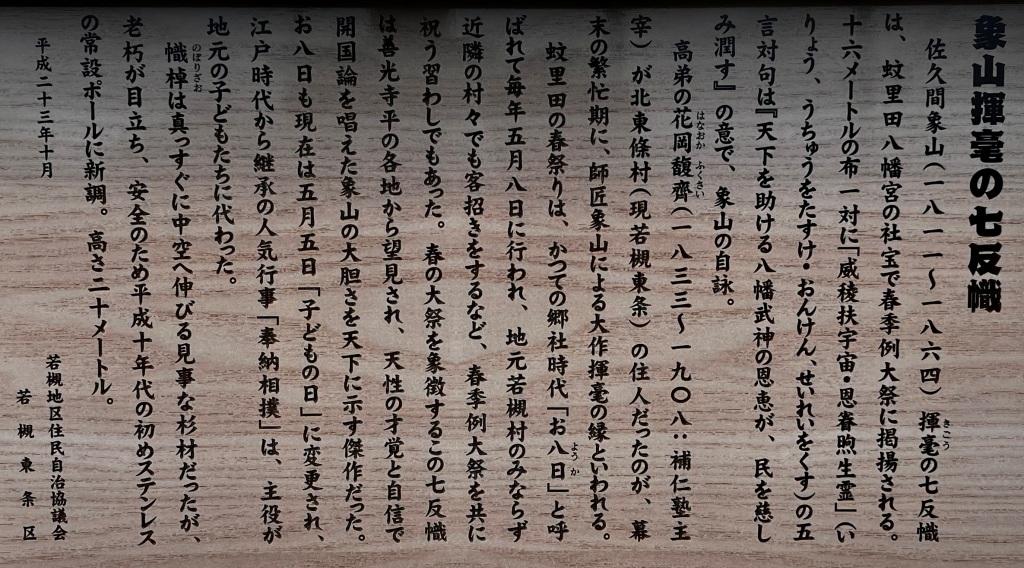 象山揮毫の七反幟
佐久間象山(一八一一〜一八六四)揮毫の七反幟
は、蚊里田八幡宮の社宝で春季例大祭に掲揚される。
十六メートルの布一対に「威稜扶宇宙・恩眷煦生霊」(い
りょう、うちゅうをたすけ・おんけん、せいれいをくす)の五
言対句は『天下を助ける八幡武神の恩恵が、民を慈し
み潤す』の意で、象山の自詠。
高弟の花岡馥齊(一八三三〜一九〇八:補仁塾主
宰)が北東條村(現若槻東条)の住人だったのが、幕
末の繁忙期に、師匠象山による大作揮毫の縁といわれる。
蚊里田の春祭りは、かつての郷社時代「お八日」と呼
ばれて毎年五月八日に行われ、地元若槻村のみならず
近隣の村々でも客招きをするなど、春季例大祭を共に
祝う習わしでもあった。春の大祭を象徴するこの七反幟
は善光寺平の各地から望見され、天性の才覚と自信で
開国論を唱えた象山の大胆さを天下に示す傑作だった。
お八日も現在は五月五日「子どもの日」に変更され、
江戸時代から継承の人気行事「奉納相撲」は、主役が
地元の子どもたちに代わった。
幟棹は真っすぐに中空へ伸びる見事な杉材だったが、
老朽が目立ち、安全のため平成十年代の初めステンレス
の常設ポールに新調。高さ二十メートル。
平成二十三年十月
若槻地区住民自治協議会
若槻東条区